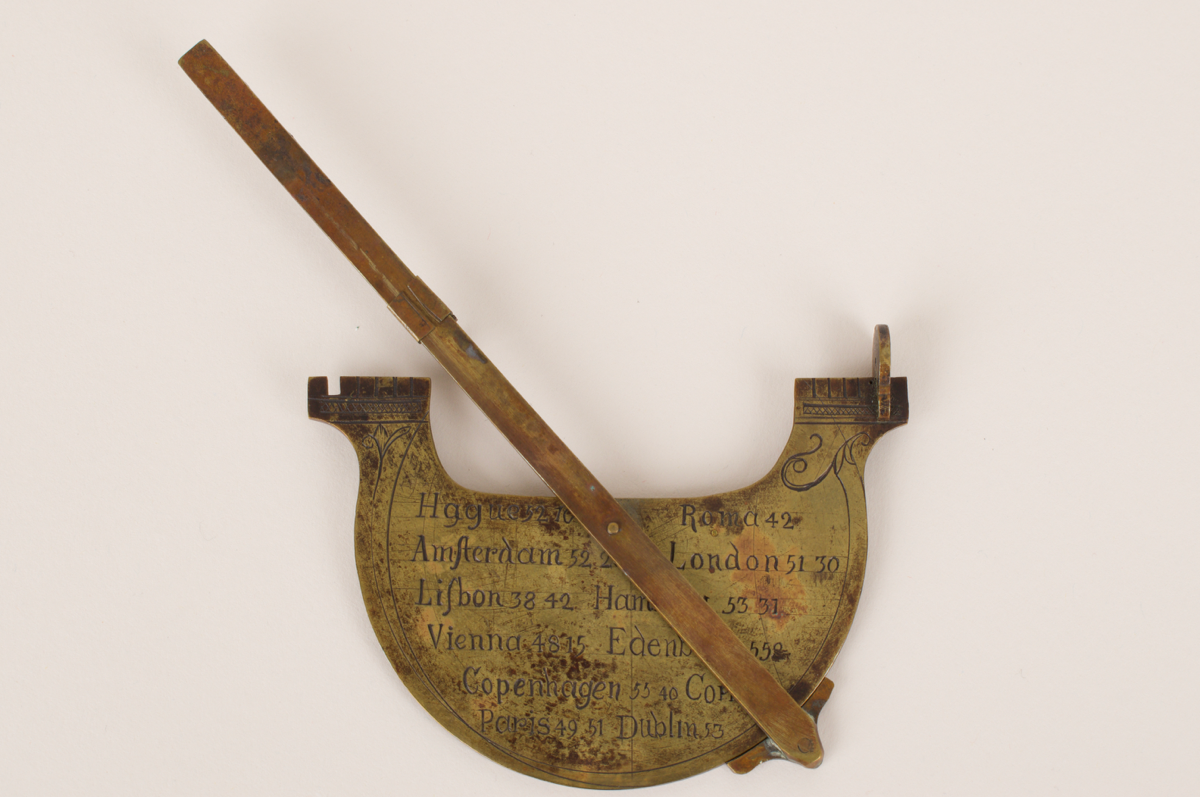 Hague 52 10 Roma 42
Amſterdam 52 2 London 51 30
Liſbon 38 42 Ham 53 31
Vienna 48 15 Edenb 55 8
Copenhagen 55 40 Cop
Paris 49 51 Dublin 53